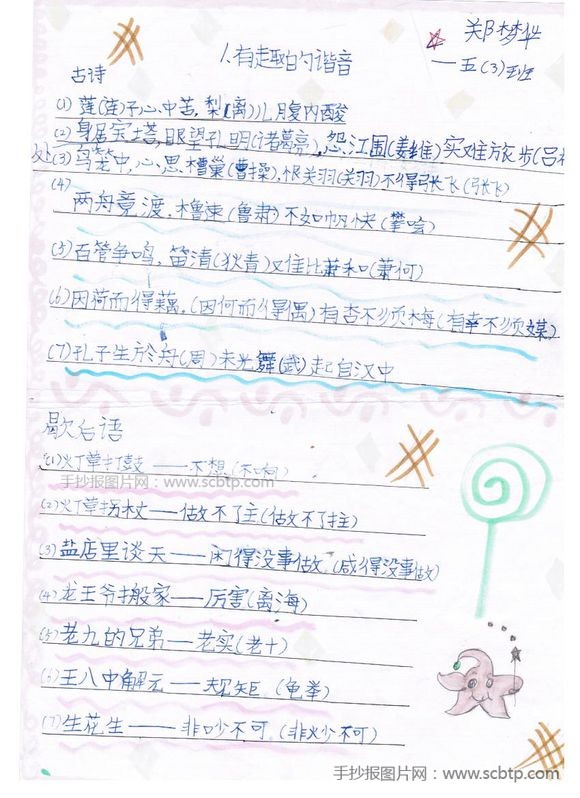 郑梦华
1.有趣的谐音
一五(3)班
古诗
(1) 莲(连)子心中苦,梨(离)儿腹内酸
(2) 身居宝塔,眼望孔明(诸葛亮),怨江围(姜维)实难旅步(吕
处(3)鸟笼中,心思槽巢(曹操),恨关羽(关羽)不得张飞(张飞)
(4)
两舟竟渡,橹速(鲁肃)不如帆快(攀哙)
(5)百管争鸣,笛清(狄青)难比萧和(萧何)
(6)因荷而得藕,(因何而得偶)有杏不须梅(有幸不须媒)
(7)孔子生於舟(周)未光舞(武)起自汉中
歇后语
(1)灯草打鼓——不想(不响)
手抄报图片网——www.scbtp.com
(2)灯草拐杖——做不了主(做不了拄)
(3)盐店里谈天——闲得没事做(咸得没事做)
(4)龙王爷搬家——厉害(离海)
(5)老九的兄弟——老实(老十)
(6)王八中解元——规矩(龟举)
(7)生花生——非吵不可(非炒不可)
手抄报图片网——www.scbtp.com